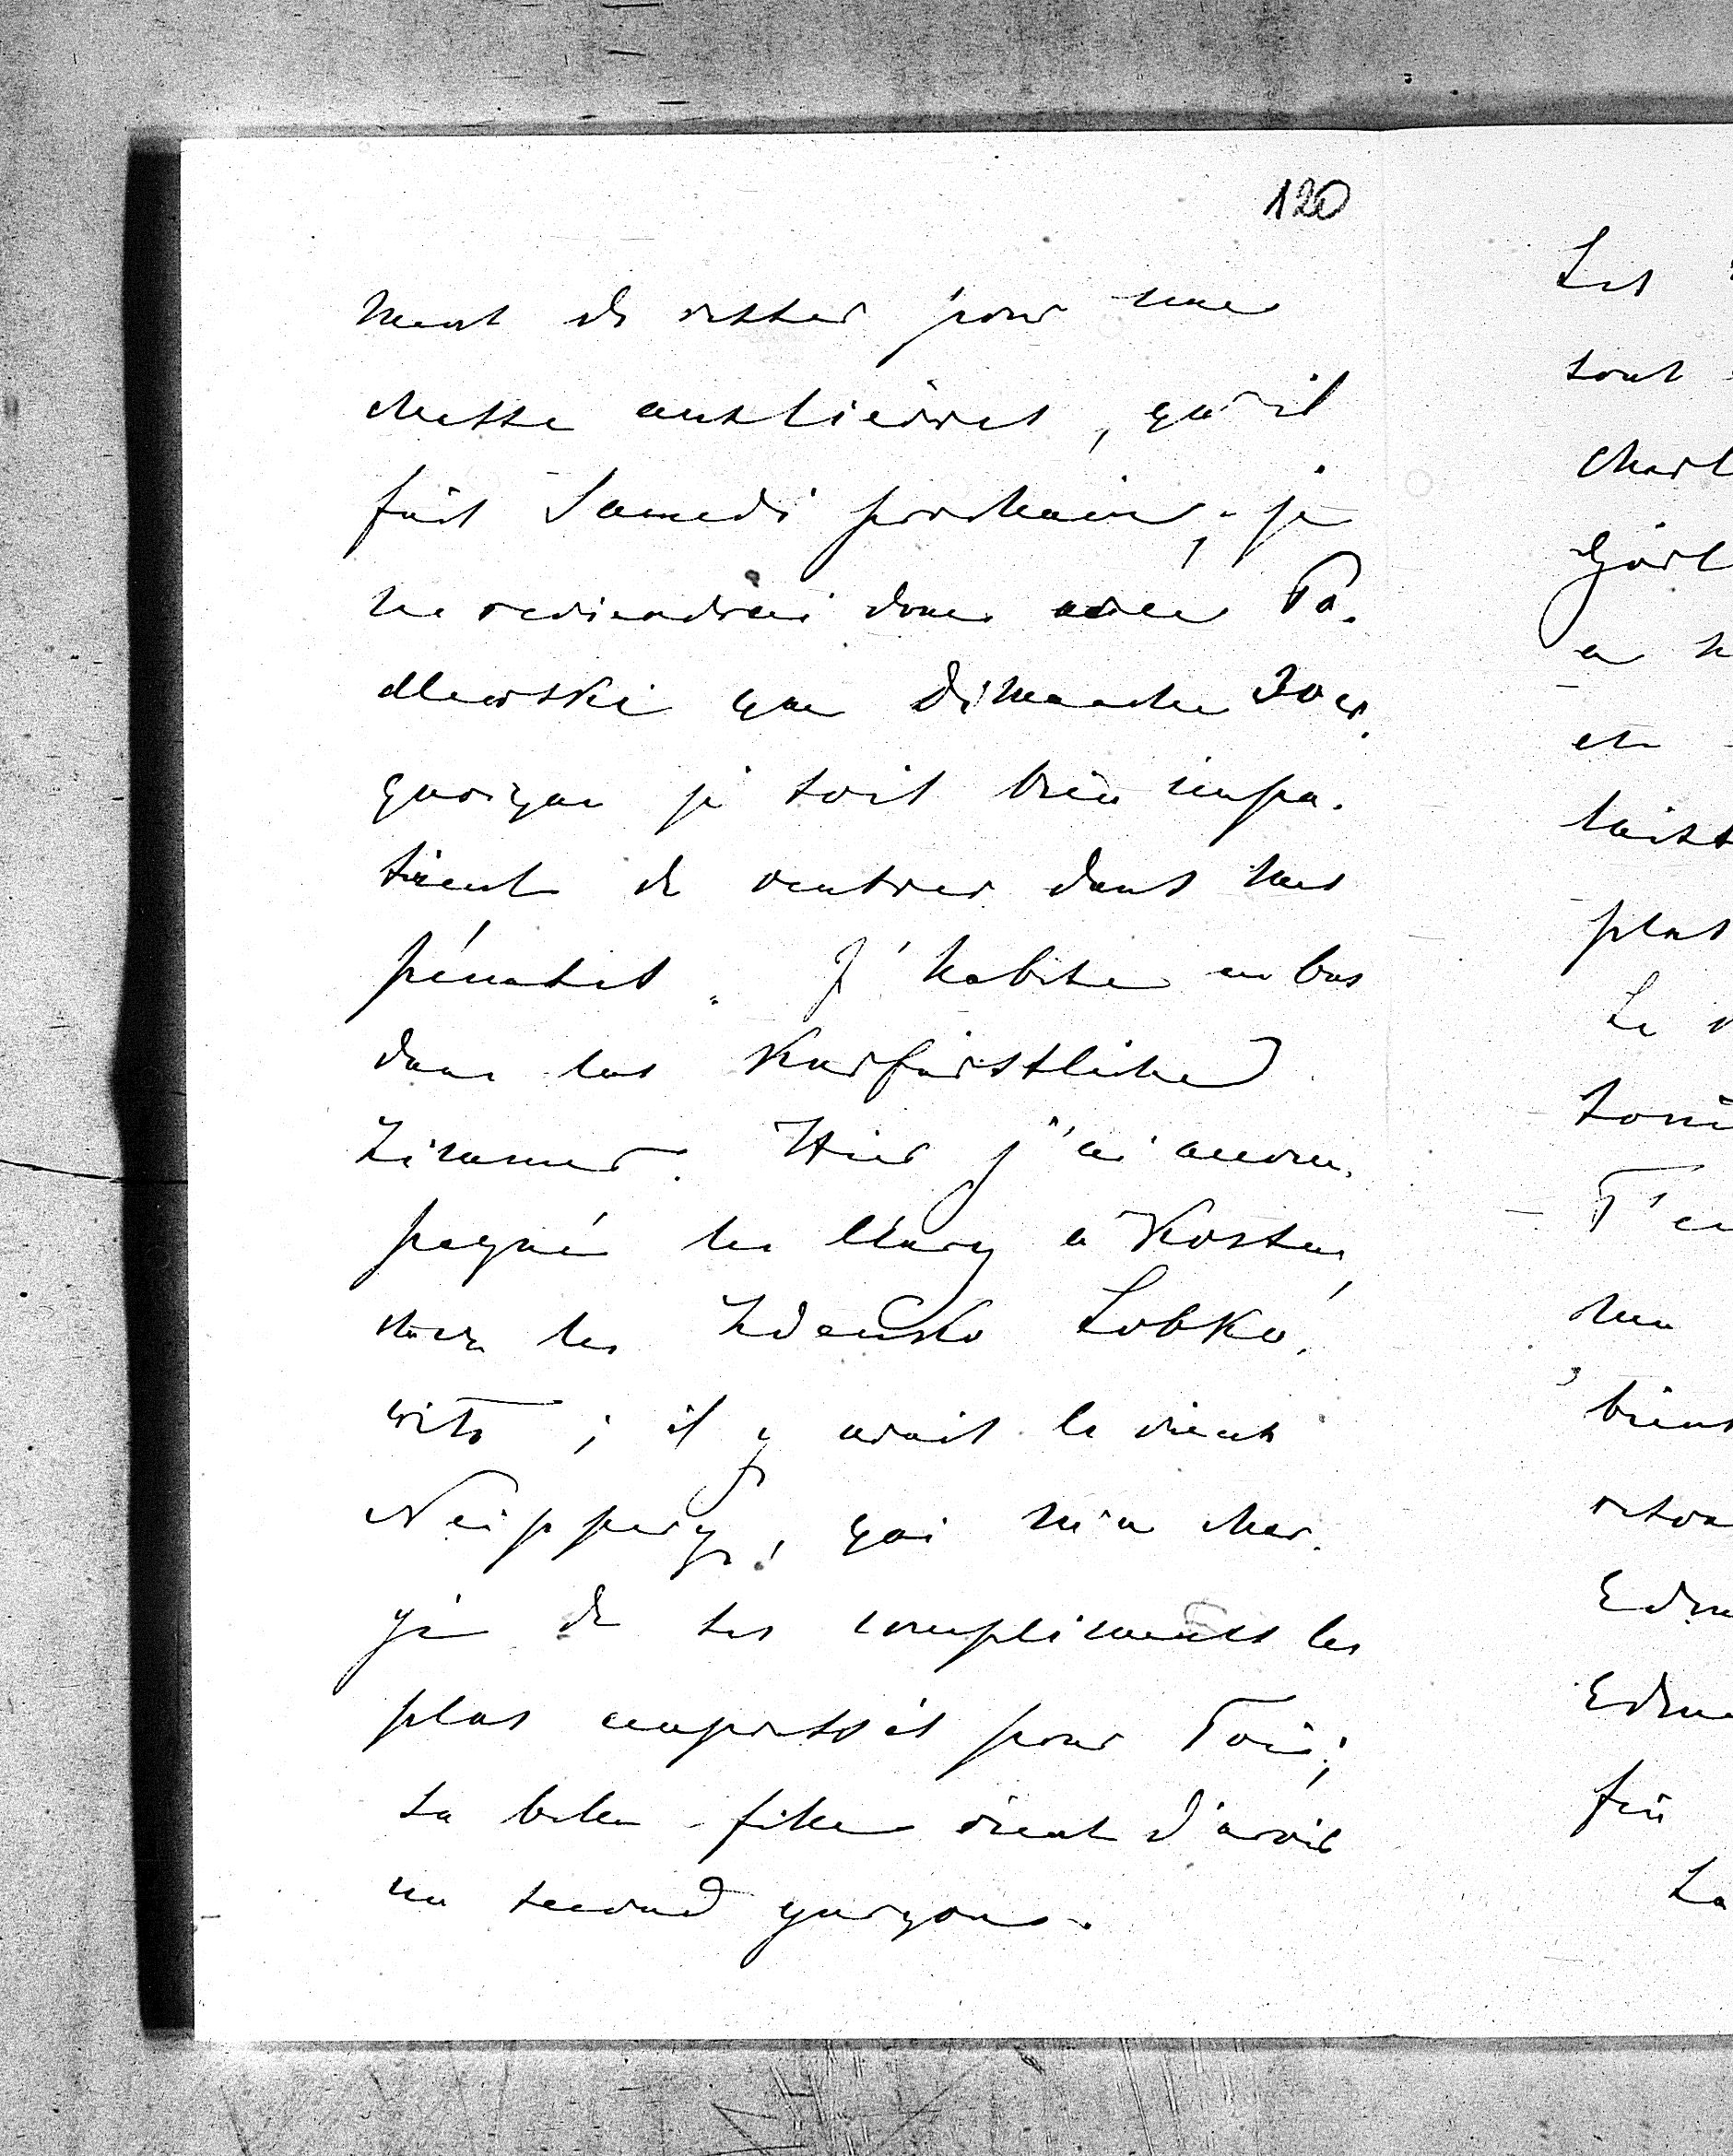 120
ment de rester pour une
chasse aux lièvres, qu'il
fait Samedi prochain; je
ne reviendrai donc avec Po.
dlewski que Dimanche 30 cr.
quoique je sois bien impa.
tient de rentrer dans mes
pénates. J'habite en bas
dans les Kurfürstliche
Zimmer. Hier j'ai accom.
pagné les Clary à Kosten,
chez les Zdenko Lobko.
witz; il y avait le vieux
Neipperg, qui m'a char.
gé de ses compliments les
plus empressés pour Toi;
sa belle-fille vient d'avoir
un second garçon.
Les
sont
Charl
Görl
a
en
laiss
plus
Le
T'en
bien
retou
Edm
Edm
fin
La